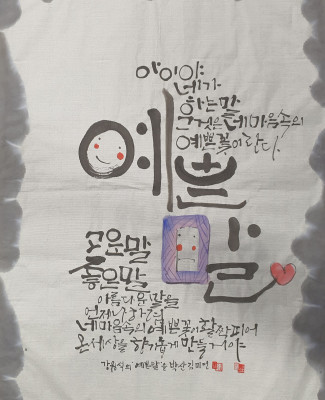 아이야
네가
하는 말
그것은 네 마음속의
예쁜 꽃이란다
예쁜 말
고운말
좋은말
아름다운 말들
언제나 하렴
네 마음속의 예쁜 꽃이 활짝 피어
온 세상을 향기롭게 만들 거야
강원석의 예쁜 말을 박산